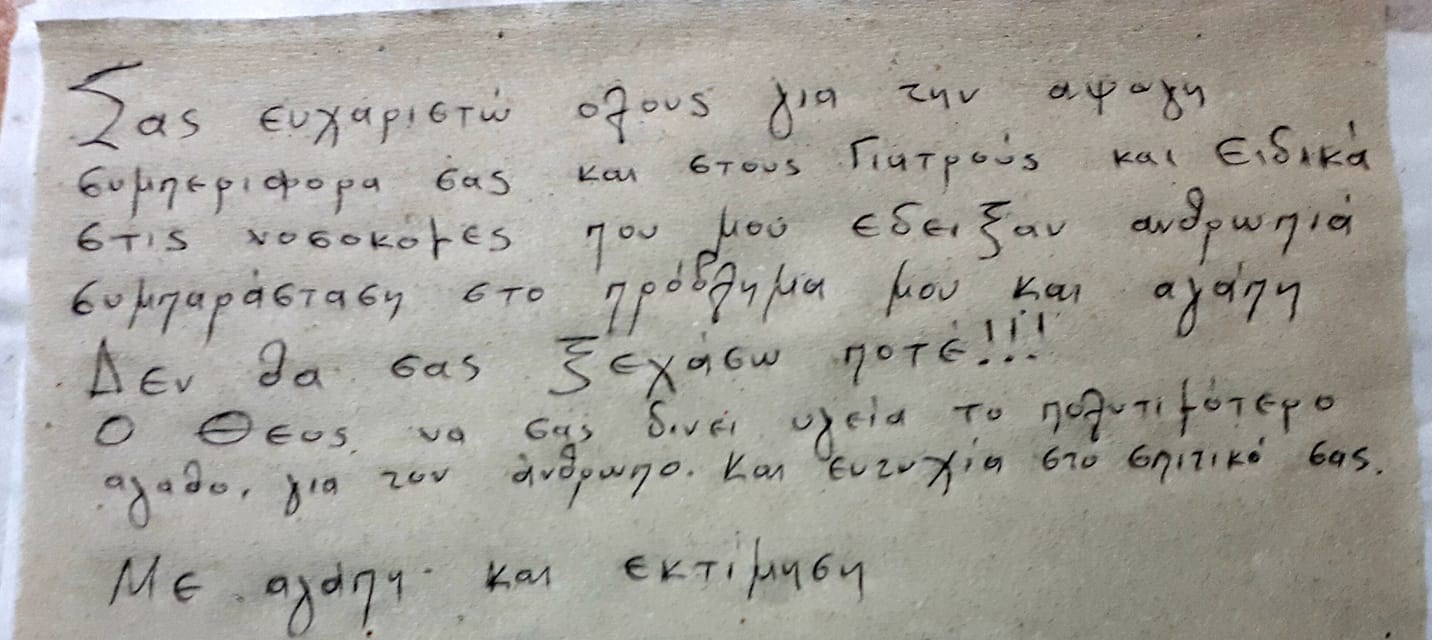 Σας ευχάριστώ ολους για την αψογη
συμπεριφορα σας και στους Γιατρούς και Ειδικά
στις νοσοκόμες που μού εδειξαν ανθρωπιά
συμπαράσταση στο πρόβλημα μου και αγάπη
Δεν θα σας ξεχάσω ποτέ!!!
Ο Θεος να σας δινει υγεία το πολυτιμότερο
αγαθο, για τον άνθρωπο. Και ευτυχία στο σπιτικό σας.
Με αγάπη και εκτίμηση